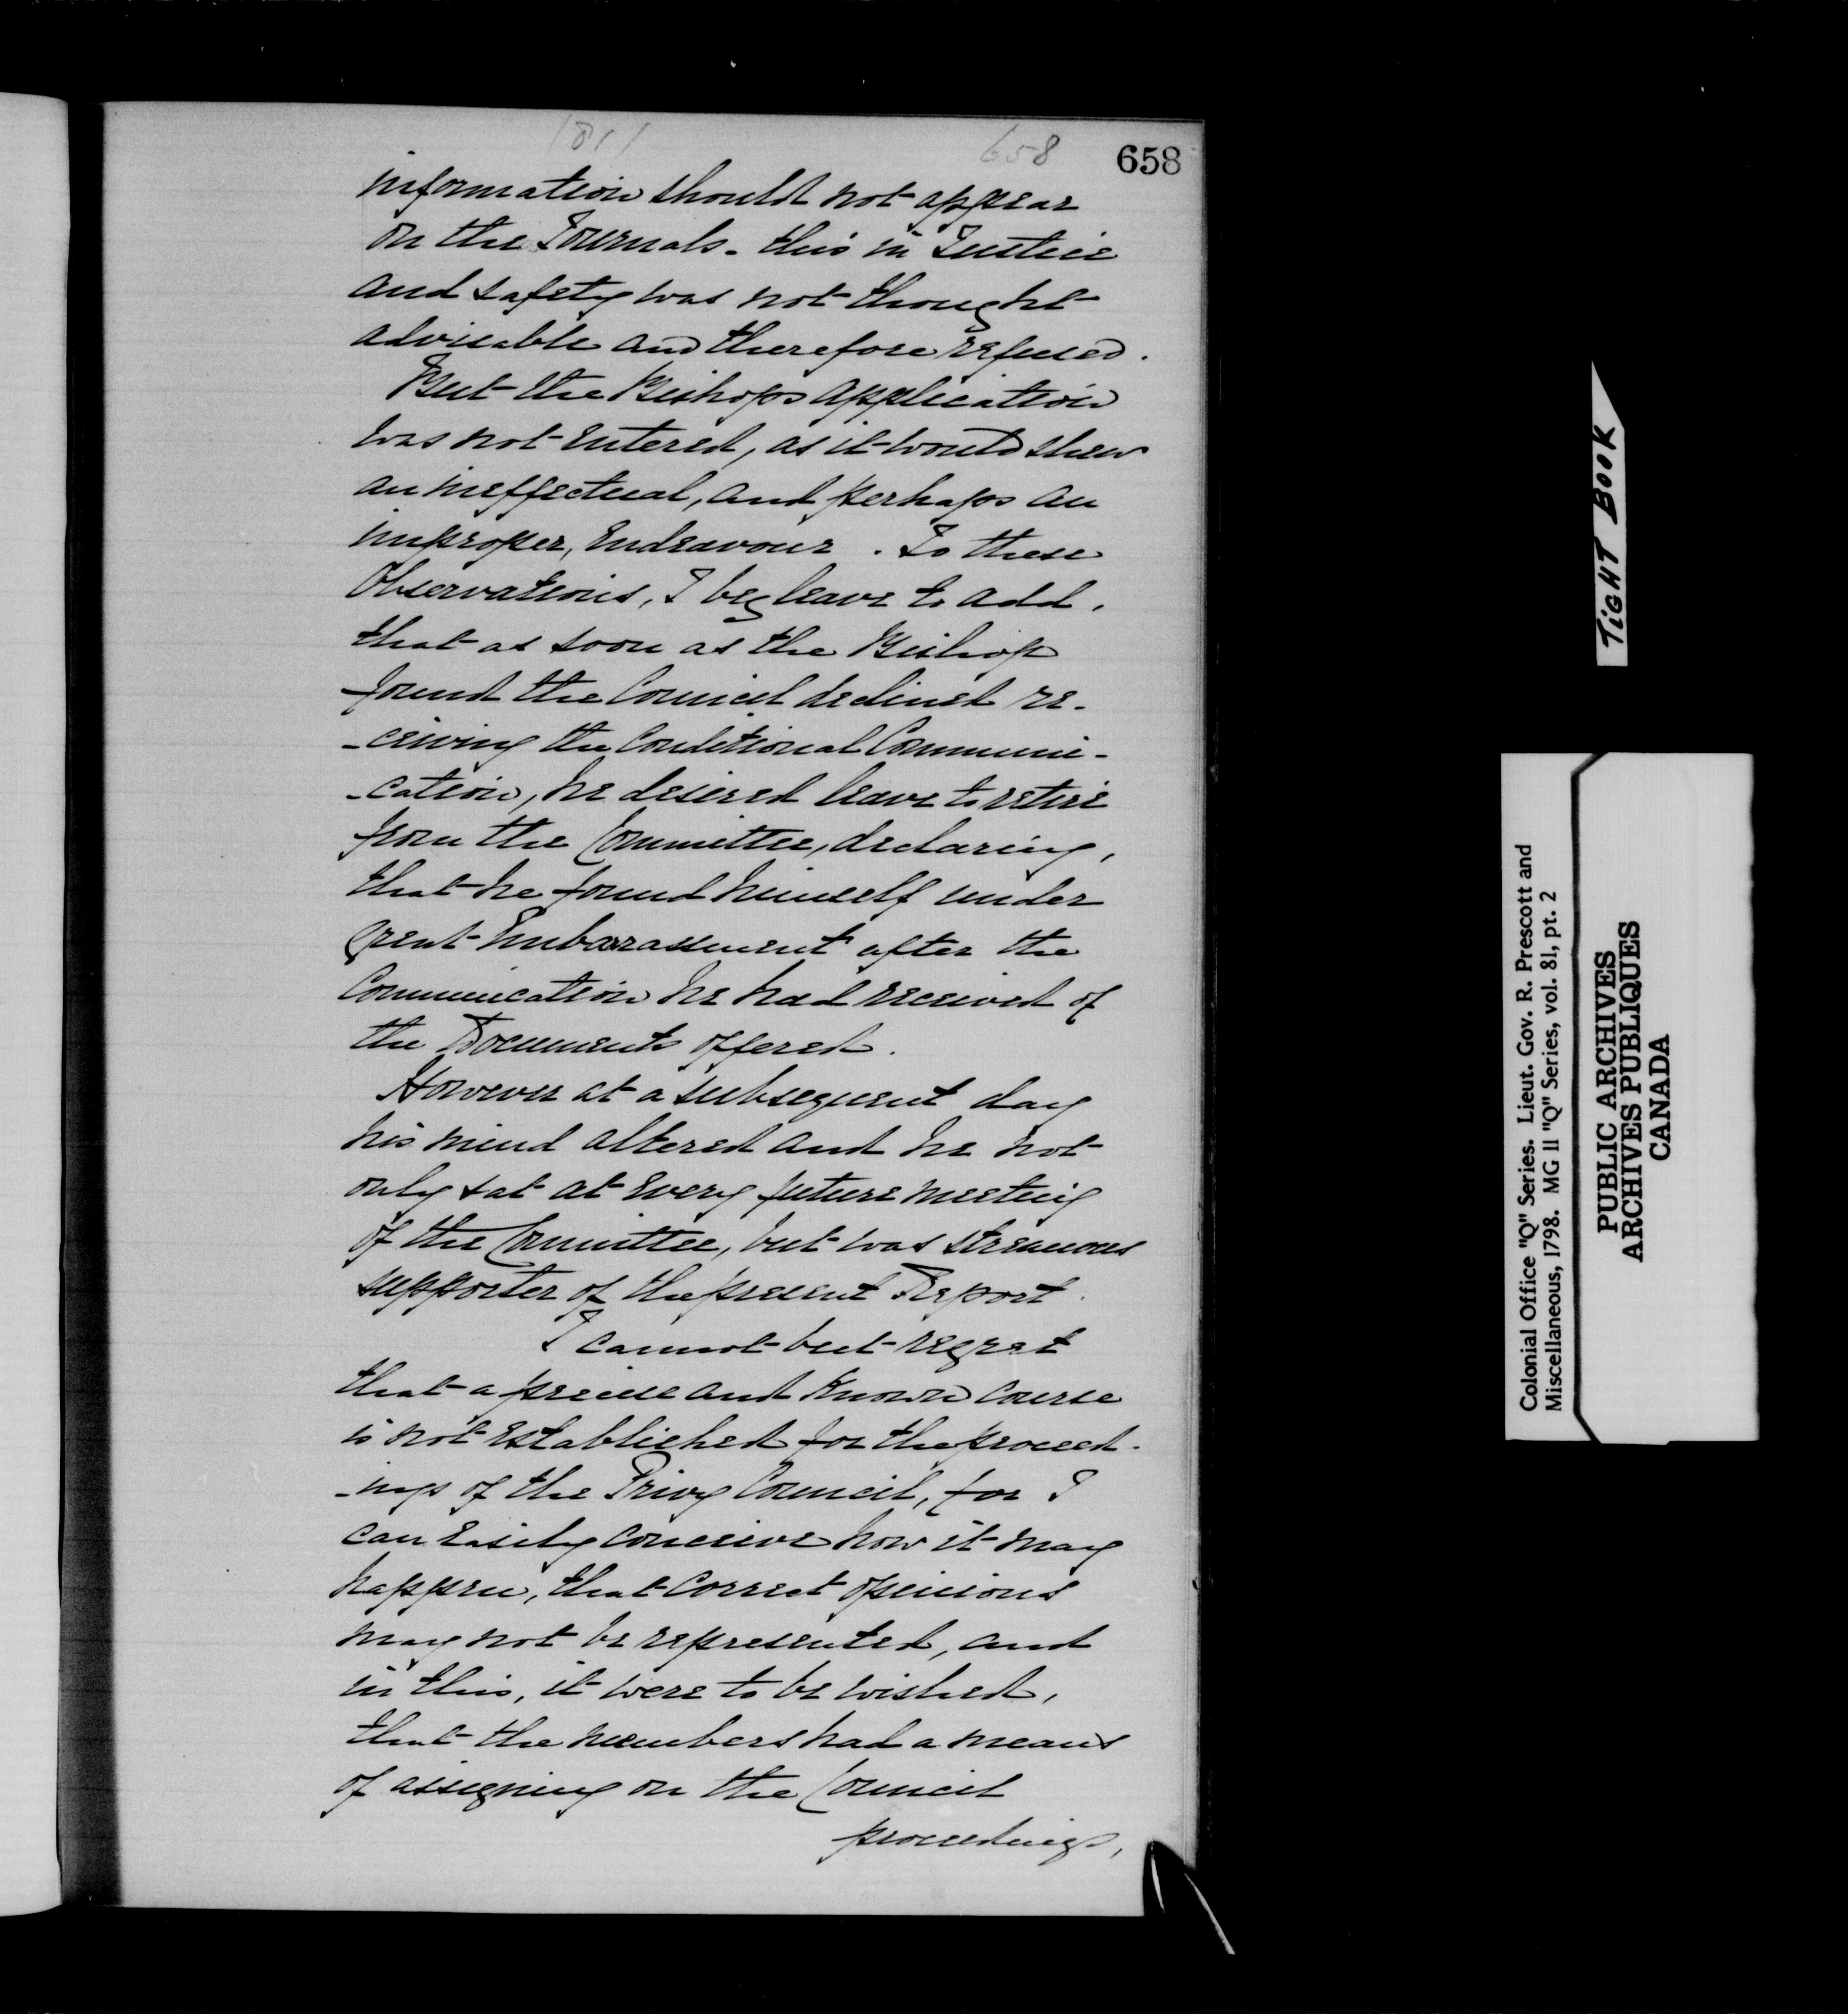 1811
658
658
information should not appear
on the Journals. this in Justice
and safety was not thought
advisable and therefore refused.
But the Bishops application
was not entered, as it would shew
an ineffectual, and perhaps an
improper, Endeavour. To these
Observations, I beg leave to add,
that as soon as the Bishop
found the Council declined re-
-ceiving the Conditional Communi-
-cation, he desired leave to retire
from the Committee, declaring,
that he found himself under
great Embarrassment after the
Communication he had received of
the Documents offered.
However at a subsequent day
his mind altered and he not
only sat at every future meeting
of the Committee, but was strenuous
supporter of the present Report.
I cannot but regret
that a precise and known course
is not established for the proceed-
-ings of the Privy Council, for I
can easily conceive how it may
happen, that correct opinions
may not be represented, and
in this, it were to be wished,
that the members had a means
of assigning on the Council
proceedings,
TIGHT BOOK
Colonial Office "Q" Series. Lieut. Gov. R. Prescott and
Miscellaneous, 1798. MG 11 "Q" Series, vol. 81, pt. 2
PUBLIC ARCHIVES
ARCHIVES PUBLIQUES
CANADA